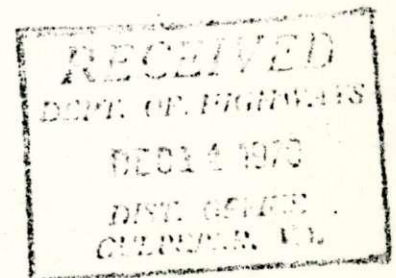 RECEIVED
DEPT. OF HIGHWAYS
DEC 14 1970
DIST. OFFICE
CULPEPER, VA.